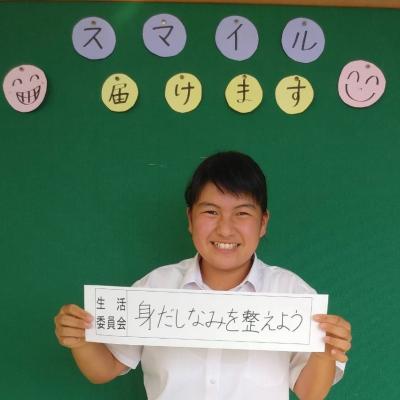 スマイル
届けます
生活
委員会
身だしなみを整えよう